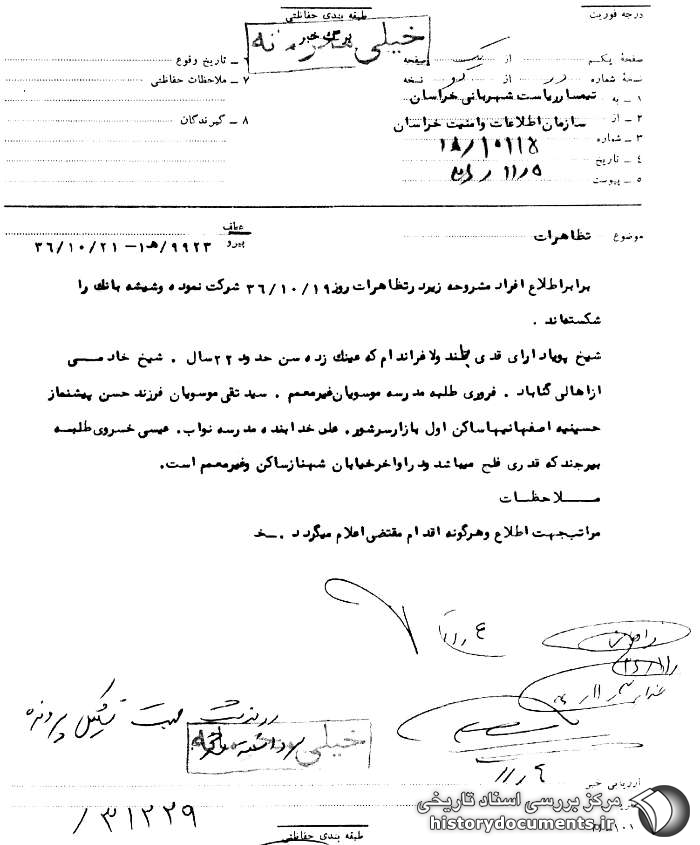 درجه فوریت
طبقه بندی حفاظتی
برگ خبر
خیلی محرمانه
صفحهٔ یکم از یک صفحه
نسخهٔ شماره از نسخه
۱ ـ به تیمسار ریاست شهربانی خراسان
۲ ـ از سازمان اطلاعات وامنیت خراسان
۳ ـ شماره
۴ ـ تاریخ
۵ ـ پیوست
۶ ـ تاریخ وقوع
۷ ـ ملاحظات حفاظتی
۸ ـ گیرندگان
موضوع تظاهرات
عطف
پیرو ۹۹۲۳/ه‍۱ – ۳۶/۱۰/۲۱
برابراطلاع افراد مشروحه زیردرتظاهرات روز ۳۶/۱۰/۱۹ شرکت نموده وشیشه بانک را
شکسته‌اند .
شیخ پویادارای قدی بلند ولاغراندام که عینک زده سن حدود ۲۲سال . شیخ خادمـــی
ازاهالی گناباد . فروری طلبه مدرسه موسویان‌غیرمعمم . سیدتقی موسویان فرزند حسن پیشنماز
حسینیه اصفهانیهاساکن اول بازارسرشور. علی خدابنده مدرسه نواب. عیسی خسروی‌طلبـــه
بیرجندکه قدری فلج میباشد ودراواخرخیابان شهنازساکن وغیرمعمم است.
مـــلاحظـات
مراتب‌جهت اطلاع وهرگونه اقدام مقتضی‌اعلام میگردد .ـخـ
جهت تشکیل پرونده
خیلی محرمانه
ارزیابی خبر
۳۱۲۲۹/
طبقه بندی حفاظتی
مرکز بررسی اسناد تاریخی
historydocuments.ir